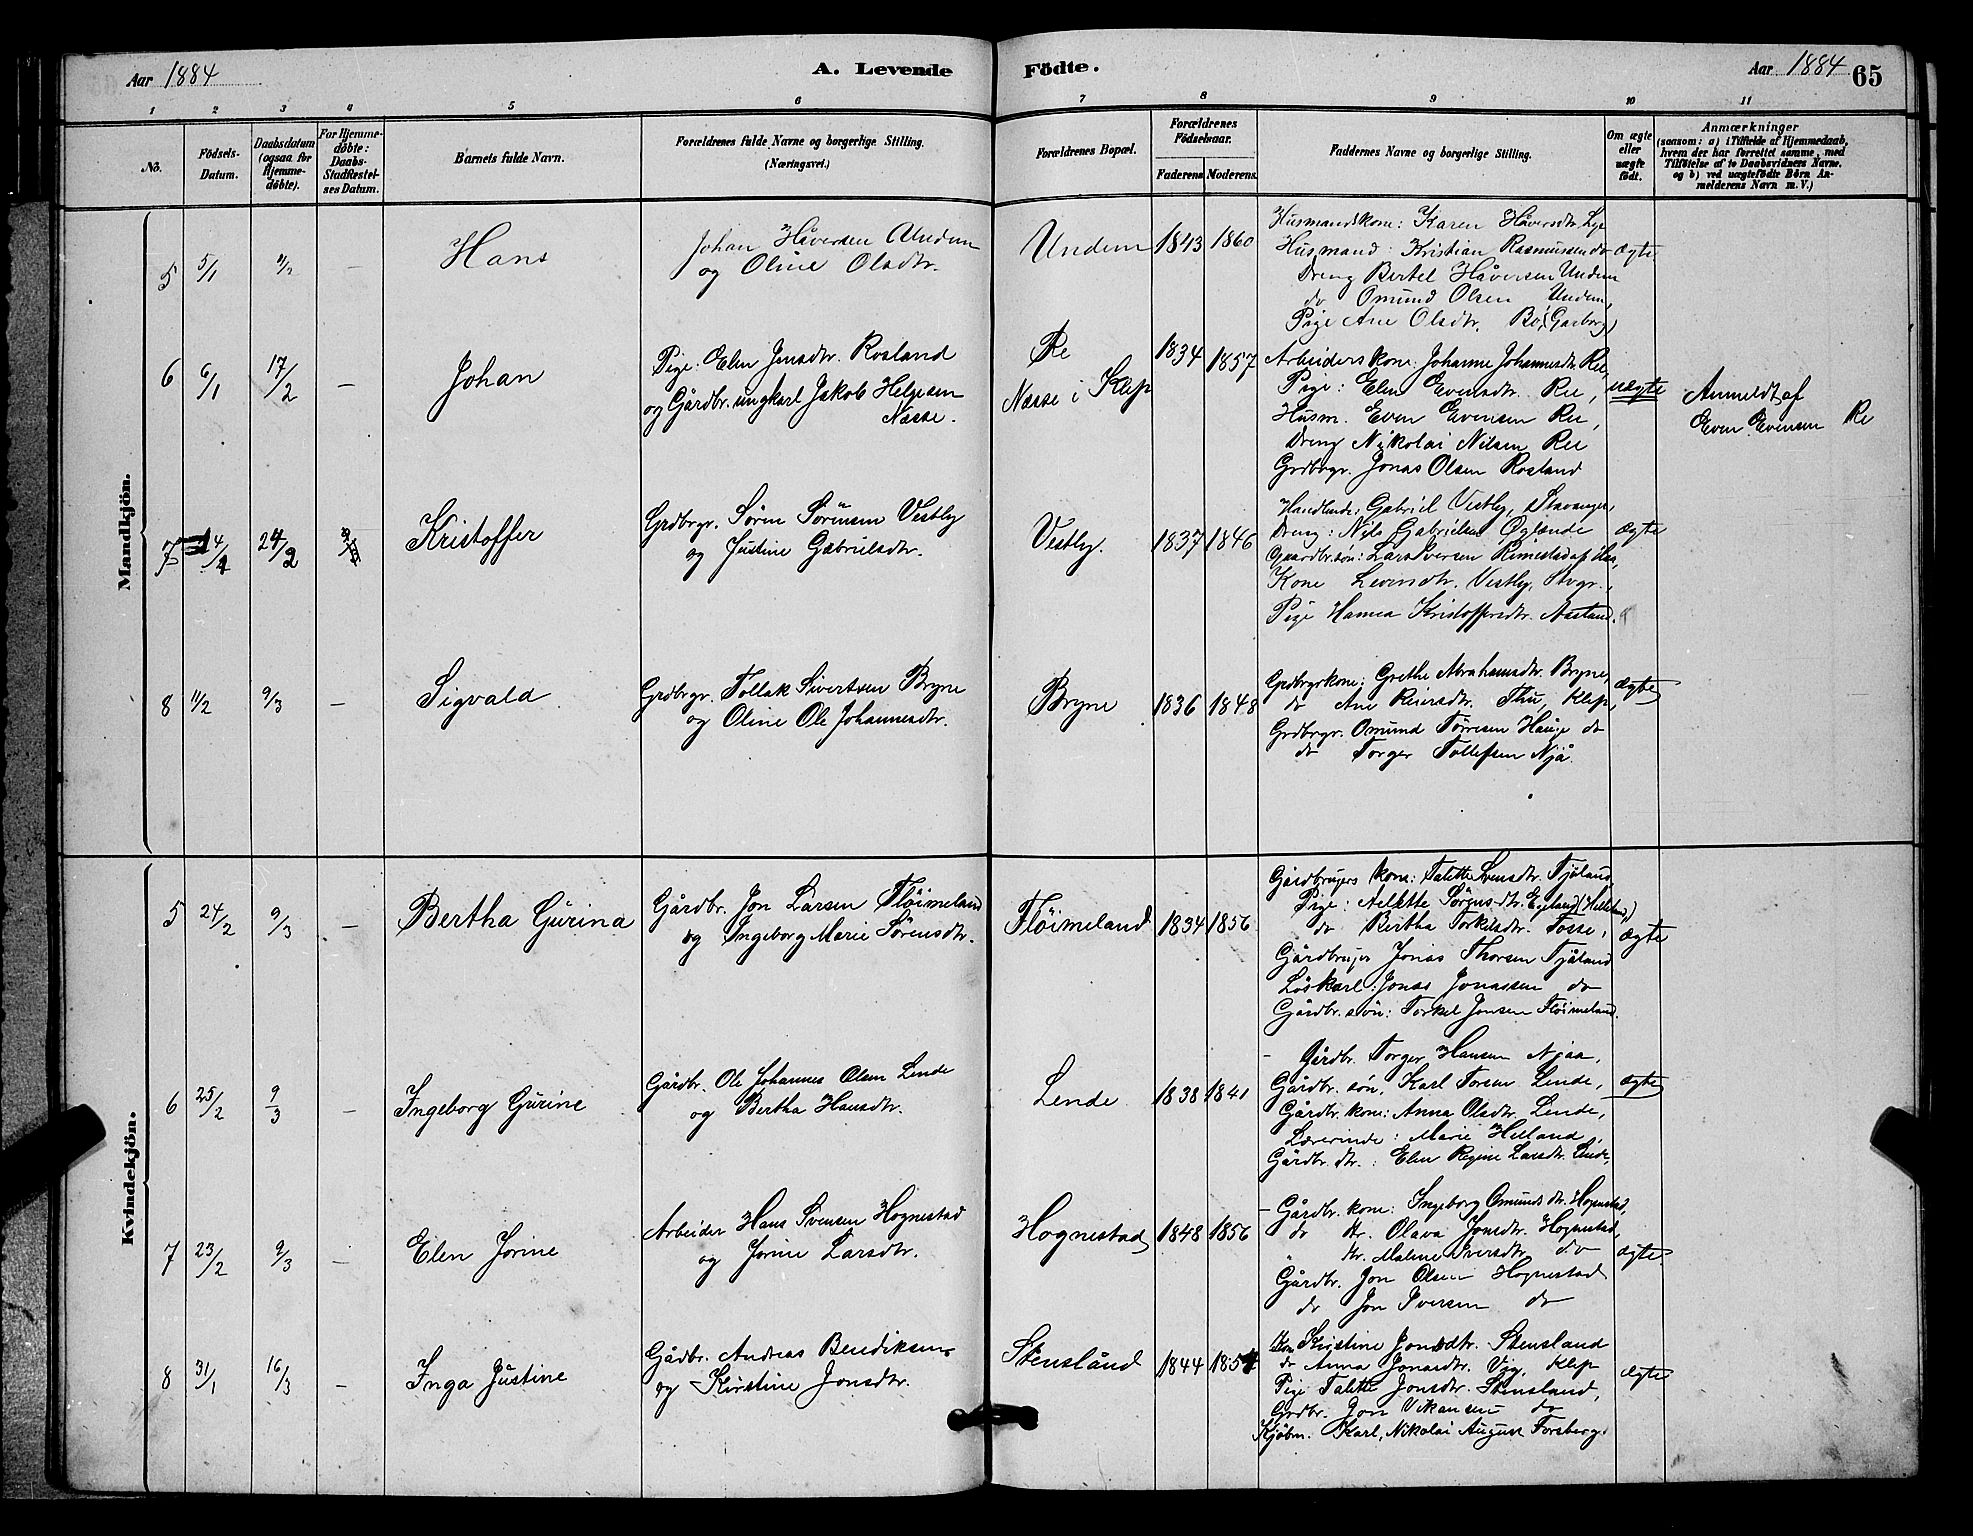 Aar 1884
A. Levende Födte.
Aar 1884 65
1 2 3 4 5 6 7 8 9 10 11
No.
Födsels-Datum.
Daabsdatum (ogsaa for Hjemme-döbte).
For Hjemme-döbte: Daabs-Stadfæstel-ses Datum.
Barnets fulde Navn.
Forældrenes fulde Navne og borgerlige Stilling. (Næringsvei.)
Forældrenes Bopæl.
Forældrenes Födselsaar.
Faderens Moderens
Faddernes Navne og borgerlige Stilling.
Om ægte eller uægte födt.
Anmærkninger
(saasom: a) i Tilfælde af Hjemmedaab, hvem der har forrettet samme, med Tilföielse af to Daabsvidners Navne, og b) ved uægtefödte Börn An-melderens Navn m. V.)
Mandkjön.
5 5/1 –
Hans
Johan Håversen Undem
og Oline Olsdtr.
Undem 1843 1860
Husmandskone: Karen Håversdtr. Lye
Husmand: Kristian Rasmussen do
Dreng Bertel Håversen Undem
do Omund Olsen Undem,
Pige Ane Olsdtr. Bö (Garborg)
ægte
6 6/1 17/2 –
Johan
Pige: Elen Jonsdtr. Rosland
og Gårdbr. ungkarl Jakob Helgesen
Næsse.
Re
Næsse i Klep
1834 1857
Arbeiders kone: Johanne Johannesdtr. Ree,
Pige: Elen Evensdtr. Ree,
Husm. Even Evensen Ree,
Dreng Nikolai Nilsen Ree
Grdbrgr. Jonas Olsen Rosland
uægte
Anmeldt af
Even Evensen Re
7 14/1 24/2
Kristoffer
Grdbrgr. Sören Sörensen Vestly
og Justine Gabrielsdtr.
Vestly. 1837 1846
Handlende: Gabriel Vestly, Stavanger,
Dreng: Nils Gabrielsen Öglænde
Gaardbr. sön: Lars Iversen Rimestad
Kone Vestly, Stvgr.,
Pige Hanna Kristoffersdtr. Aasland.
ægte
8 11/2 9/3 –
Sigvald
Grdbrgr. Tollak Sivertsen Bryne
og Oline Ole Johannesdtr.
Bryne 1836 1848
Grdbrgrkone: Grethe Abrahamsdtr. Bryne,
do Ane Reiersdtr. Thu, Klep,
Grdbrgr. Omund Törresen Hauge do
do Torger Tollefsen Njå.
ægte
Kvindekjön.
5 24/2 9/3 –
Bertha Gurina
Gårdbr. Jon Larsen Flöimeland
og Ingeborg Marie Sörensdtr.
Flöimeland 1834 1856
Gårdbrugers kone: Talette Svensdtr. Tjåland,
Pige: Sörensdtr. Egeland
do Bertha Torkelsdtr. Fosse,
Gårdbruger Jonas Thorsen Tjåland
Löskarl: Jonas Jonassen do
Gårdbr. sön: Torkel Jonsen Flöimeland.
ægte
6 25/2 9/3 –
Ingeborg Gurine
Gårdbr. Ole Johannes Olsen Lende
og Bertha Hansdtr.
Lende 1838 1841
– Gårdbr. Torger Hansen Njaa,
Gårdbr. sön, Karl Torsen Lende,
Gårdbr. kone: Anna Olsdtr. Lende,
Lærerinde: Marie Helland,
Gårdbr. dtr.: Elen Regine Larsdtr. Lende,
ægte
7 23/2 9/3 –
Elen Jorine
Arbeider Hans Svensen Hognestad
og Jorine Larsdtr.
Hognestad 1848 1856
– Gårdbr. kone: Ingeborg Omundsdtr. Hognestad,
do dtr. Olava Jonsdtr. Hognestad,
" dtr. Malene Iversdtr. do
Gårdbr. Jon Olsen Hognestad
do Jon Iversen do
ægte
8 31/1 16/3 –
Inga Justine
Gådbr. Andreas Bendiksen
og Kirstine Jonsdtr.
Stensland 1844 1854
Kone Kristine Jonsdtr. Stensland
do Anna Jonasdtr. Vig, Klep
Pige Talette Jonsdtr. Stensland,
Grdbr. Jon do
Kjöbm. Karl, Nikolai August Forsberg.
ægte